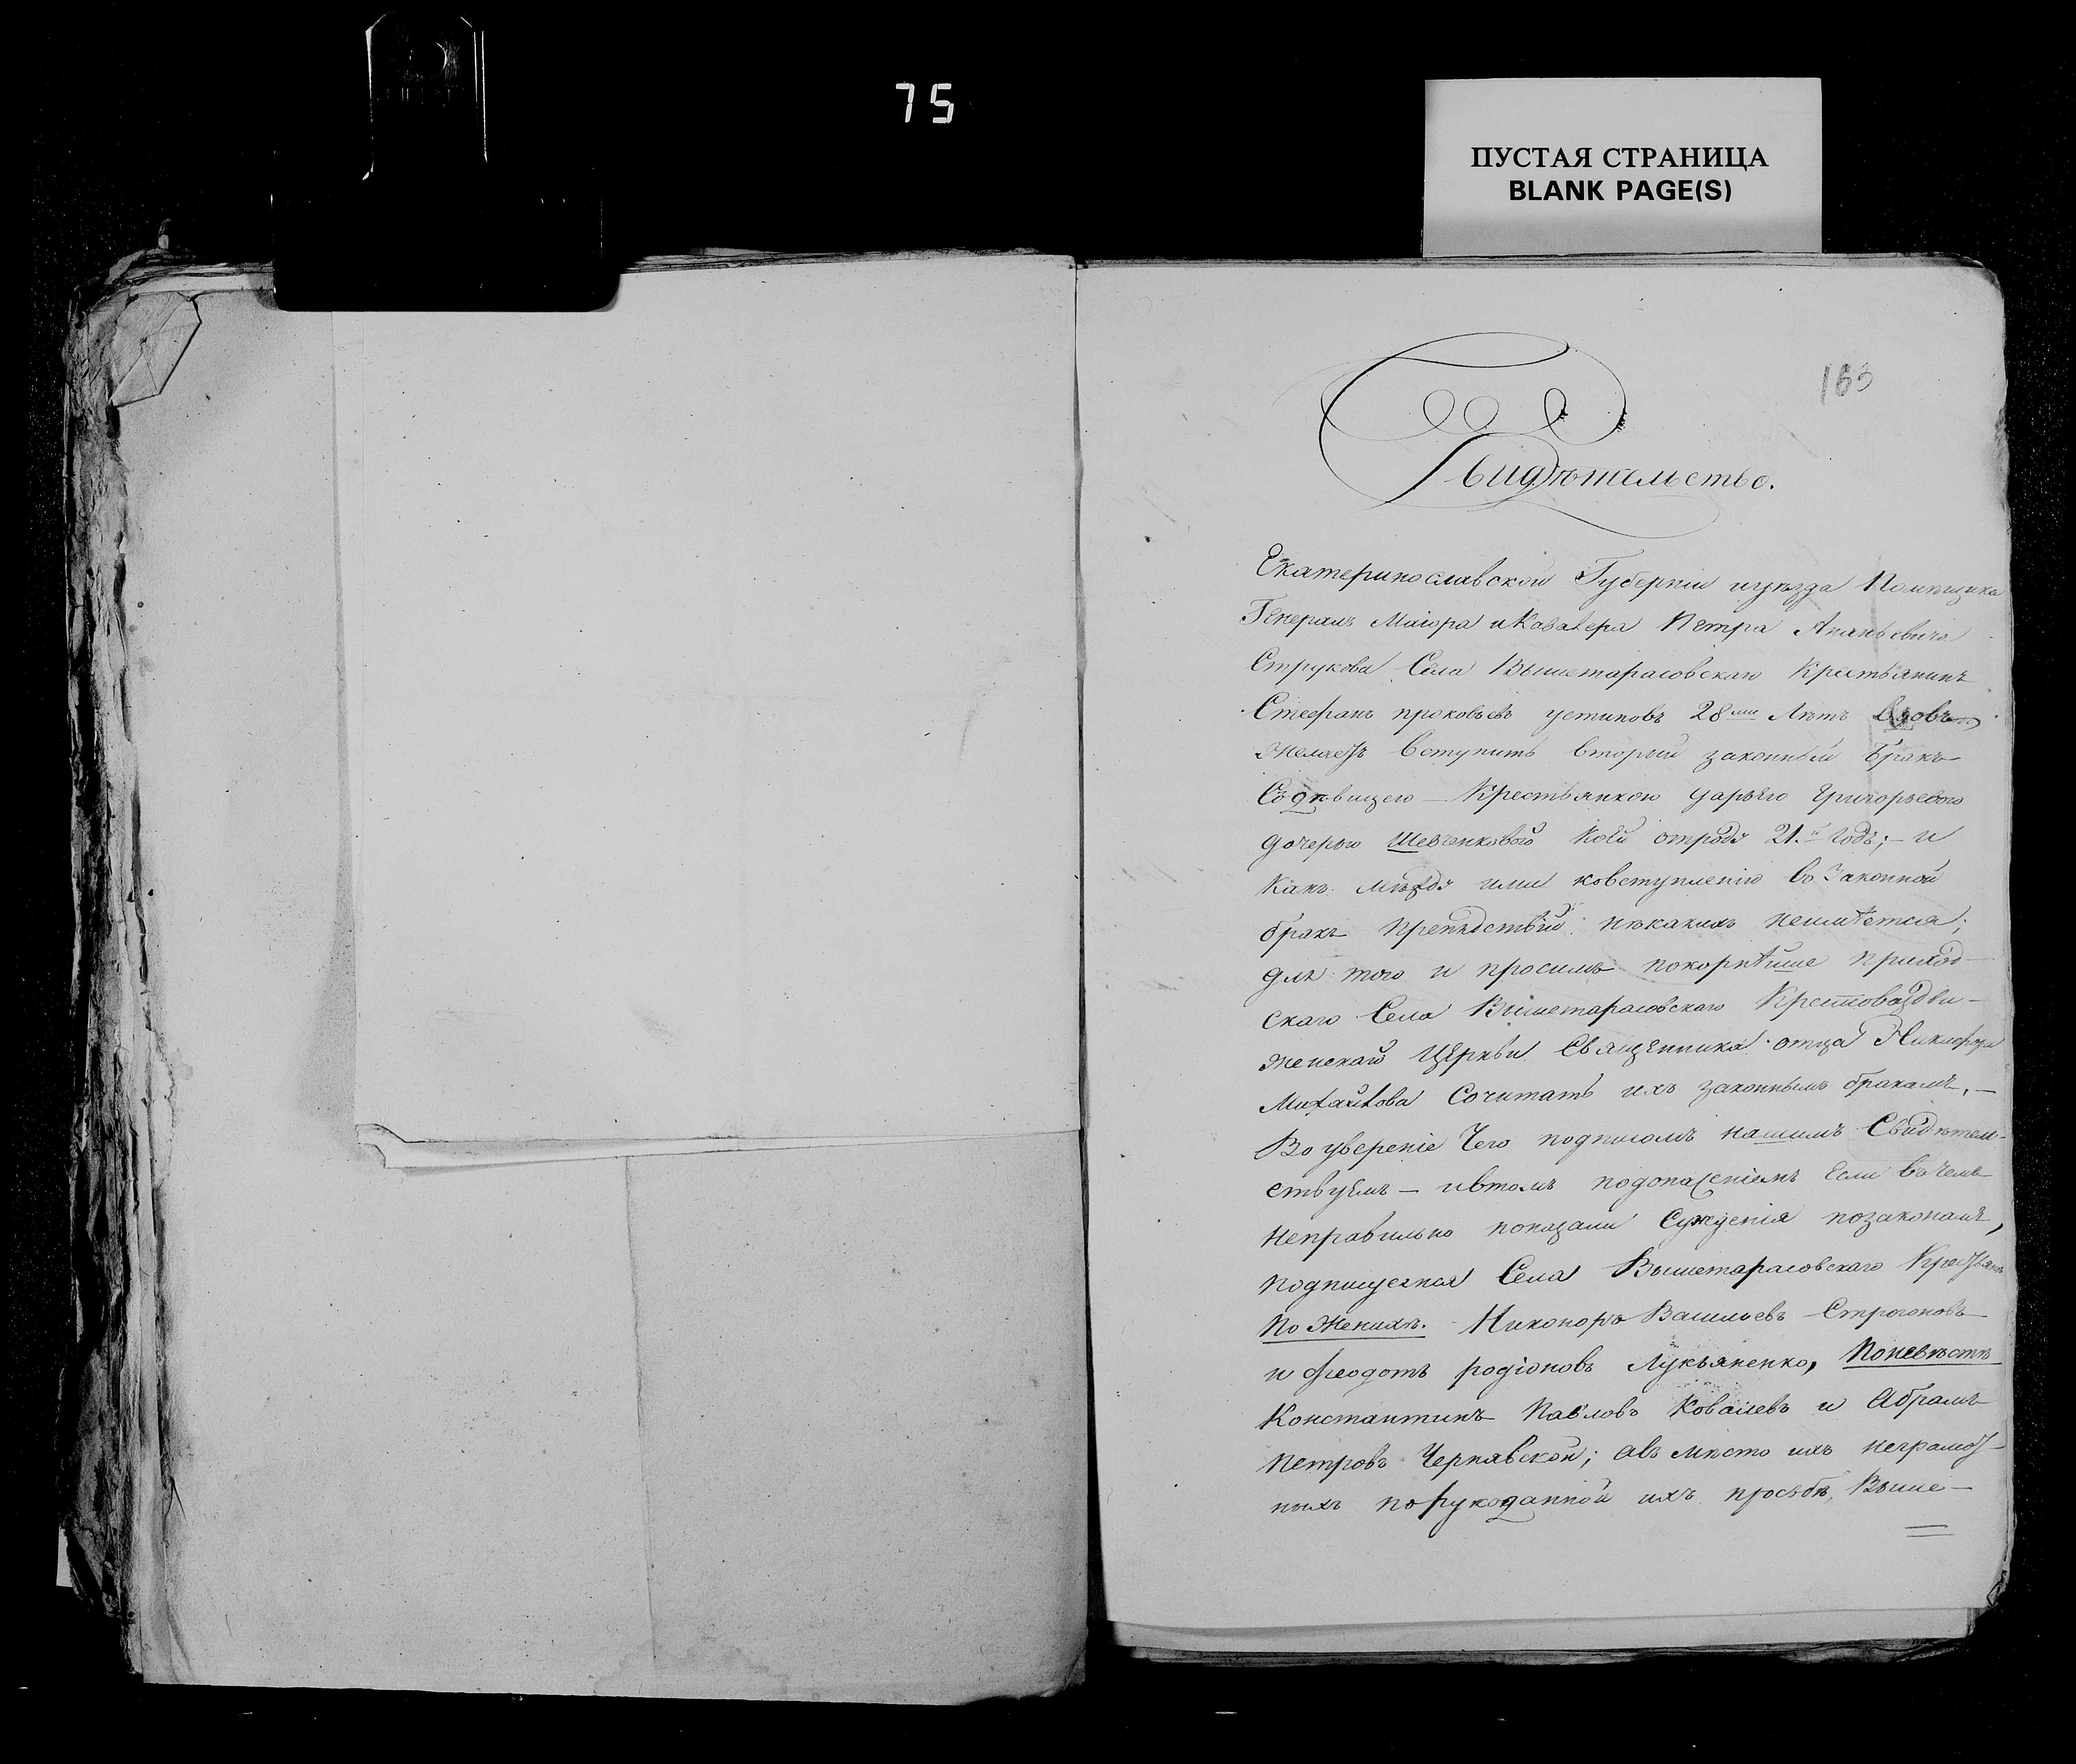 75
ПУСТАЯ СТРАНИЦА
BLANK PAGE(S)
163
Свидѣтельство.
Екатеринославской Губерніи иуѣзда Помѣщика
Генералъ Маіора иКавалера Петра Ананьевича
Струкова Села Вышетарасовскаго Крестьянинъ
Стефанъ проковьевъ устиновъ 28ми Лѣтъ вдовъ,
Желаетъ Вступить вторый законный бракъ
Содѣвицею – Крестьянкою дарьею григорьевою
дочерью Шевченковою коей отроду 21.й годъ; – и
Какъ между ими ковступленію въ Законной
бракъ препядствій нѣкакихъ неимѣется;
длѣ того и просимъ покорнѣйше приход-
скаго Села Вышетарасовскаго Крестовоздви-
женской Церкви Священника отца Никифора
Михайлова Сочитать ихъ законнымъ бракамъ. –
Во увереніе Чего подписомъ нашимъ Свидѣтель-
ствуемъ – ивтомъ подопасеніемъ Если въ чемъ
неправильно показали Сужденія позаконамъ,
подписуемся Села Вышетарасовскаго Крестьяне
По Женихѣ. Никоноръ Васильевъ Строгоновъ
и феодотъ родіоновъ Лукьяненко, Поневѣстѣ
Константинъ Павловъ Ковалевъ и Абрамъ
петровъ Чернявской; авъ мѣсто ихъ неграмот-
ныхъ порукоданной ихъ просьбѣ, Выше-